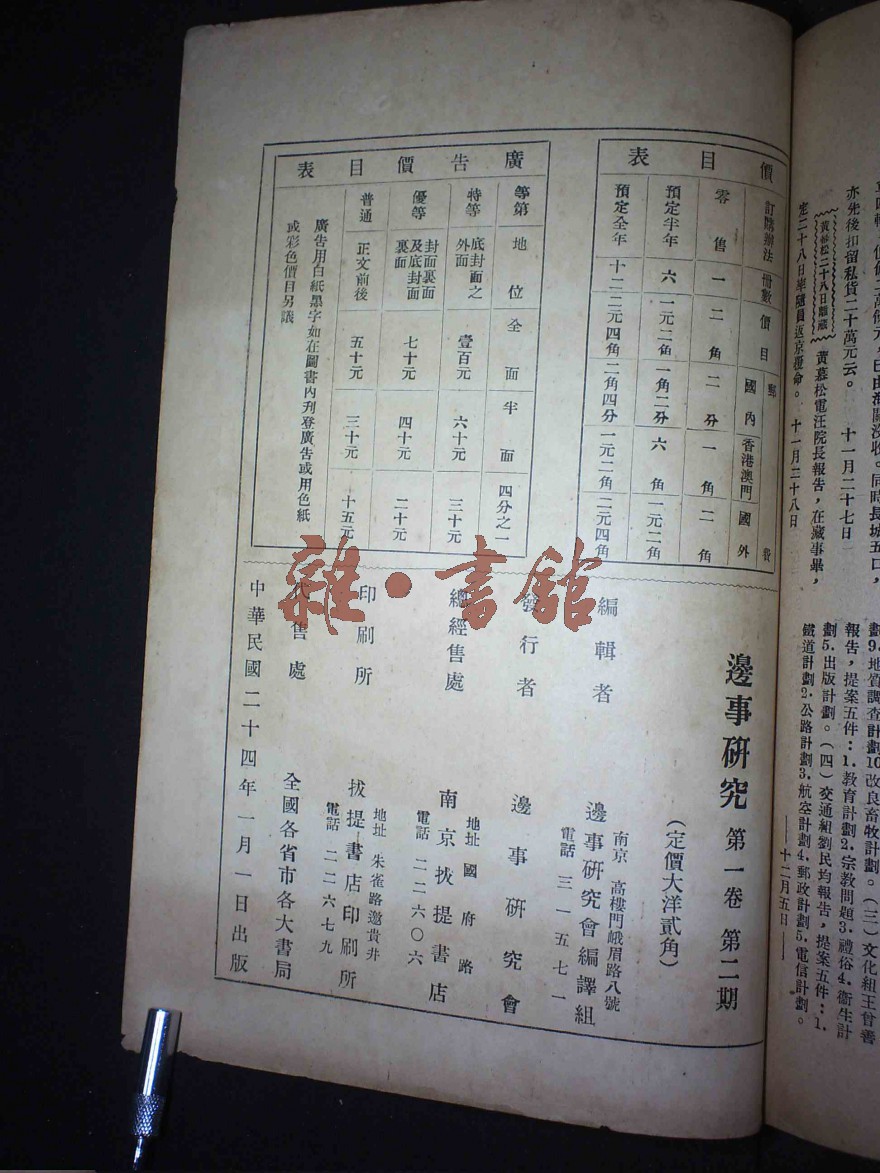 亦先後扣留私貨二十萬元云。 十一月二十七日
黃慕松二十八日離藏 黃慕松電汪院長報告，在藏事畢，
定二十八日率隨員返京覆命。 十一月二十八日
劃9.地質調查計劃10改良畜牧計劃。（三）文化組王曾善
報告，提案五件：1.教育計劃2.宗教問題3.禮俗4.衞生計
劃5.出版計劃。（四）交通組劉民均報告，提案五件：1.
鐵道計劃2.公路計劃3.航空計劃4.郵政計劃5.電信計劃。
——十二月五日——
價目表
訂購辦法 冊數 價目 郵費 國內 香港澳門 國外
零售 一 二角 二分 一角 二角
預定半年 六 一元二角 一角二分 六角 一元二角
預定全年 十二 二元四角 二角四分 一元二角 二元四角
廣告價目表
等第 地位 全面 半面 四分之一
特等 底封面之外面 壹百元 六十元 三十元
優等 封面裏面及底封面裏面 七十元 四十元 二十元
普通 正文前後 五十元 三十元 十五元
廣告用白紙墨字如在圖書內刊登廣告或用色紙
或彩色價目另議
邊事研究 第一卷 第二期
（定價大洋貳角）
編輯者
南京 高樓門峨眉路八號
邊事研究會編譯組
電話 三一五七一
發行者 邊事研究會
總經售處
地址 國府路
南京拔提書店
電話 二二六〇六
印刷所
地址 朱雀路邀貴井
拔提書店印刷所
電話 二二六七九
代售處 全國各省市各大書局
中華民國二十四年一月一日出版
雜·書館